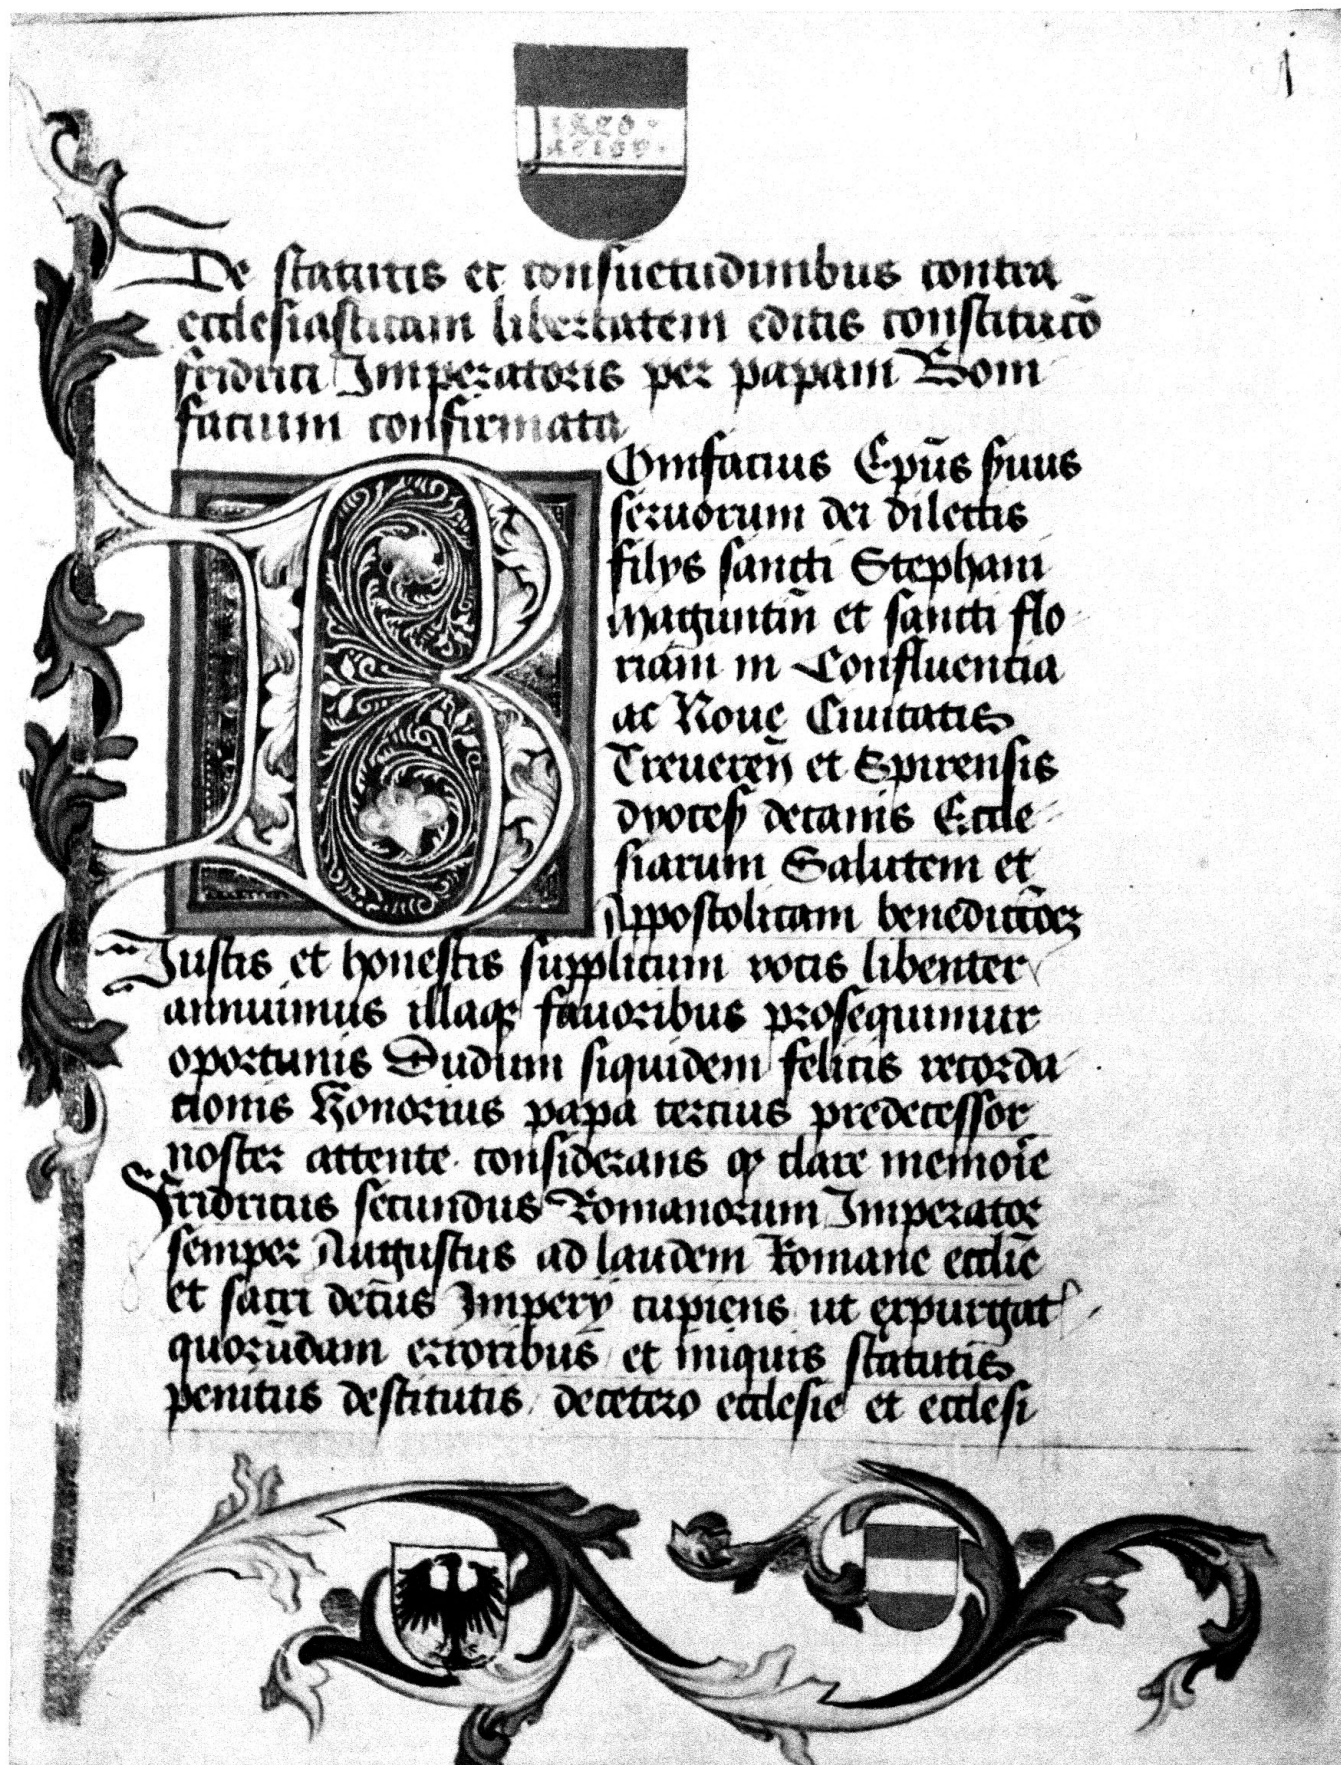 1
1420
aeiov
De statutis et consuetudinibus contra
ecclesiasticam libertatem editis constitutō
fridrici Imperatoris per papam Boni
facium confirmata
Bonifacius Ep̄us s̄uus
seruorum dei dilectis
filys sancti Stephani
Maguntin̄ et sancti flo
riani in Confluencia
ac Noue Ciuitatis
Treueren̄ et Spirensis
dyoces̄ decanis Eccle
siarum Salutem et
Appostolicam benedictōez
Iustis et honestis supplicum votis libenter
annuimus illaqꝫ fauoribus prosequimur
oportunis Dudum siquidem felicis recorda
cionis Honorius papa tercius predecessor
noster attente considerans ꝙ clare memoīe
Fridricus secundus Romanorum Imperator
semper Augustus ad laudem Romane eccliē
et sacri decus Impery cupiens ut expurgat
quorūdam erroribus et iniquis statutis
penitus destitutis decetero ecclesie et ecclesi